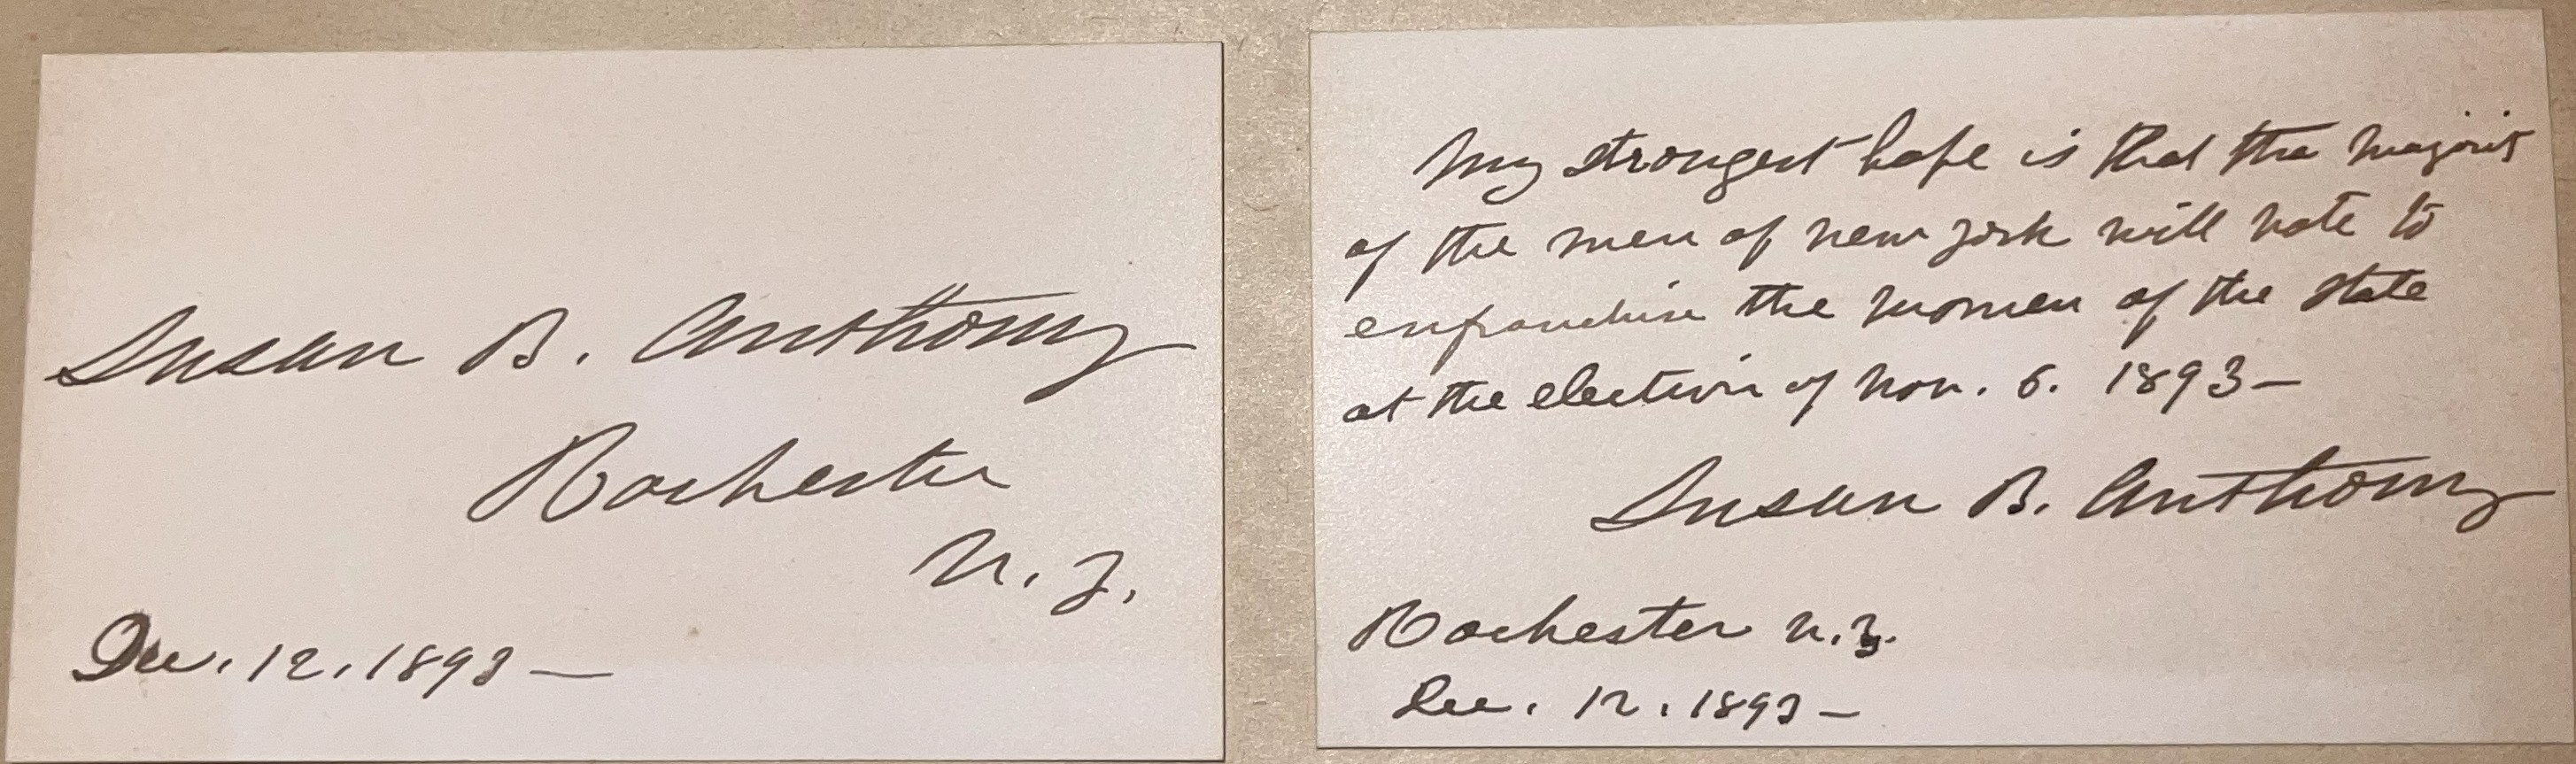 Susan B. Anthony
Rochester
N.Y.
Dec. 12. 1893—
My strongest hope is that the majority
of the men of New York will vote to
enfranchise the women of the state
at the election of Nov. 6. 1893—
Susan B. Anthony
Rochester N.Y.
Dec. 12. 1893—